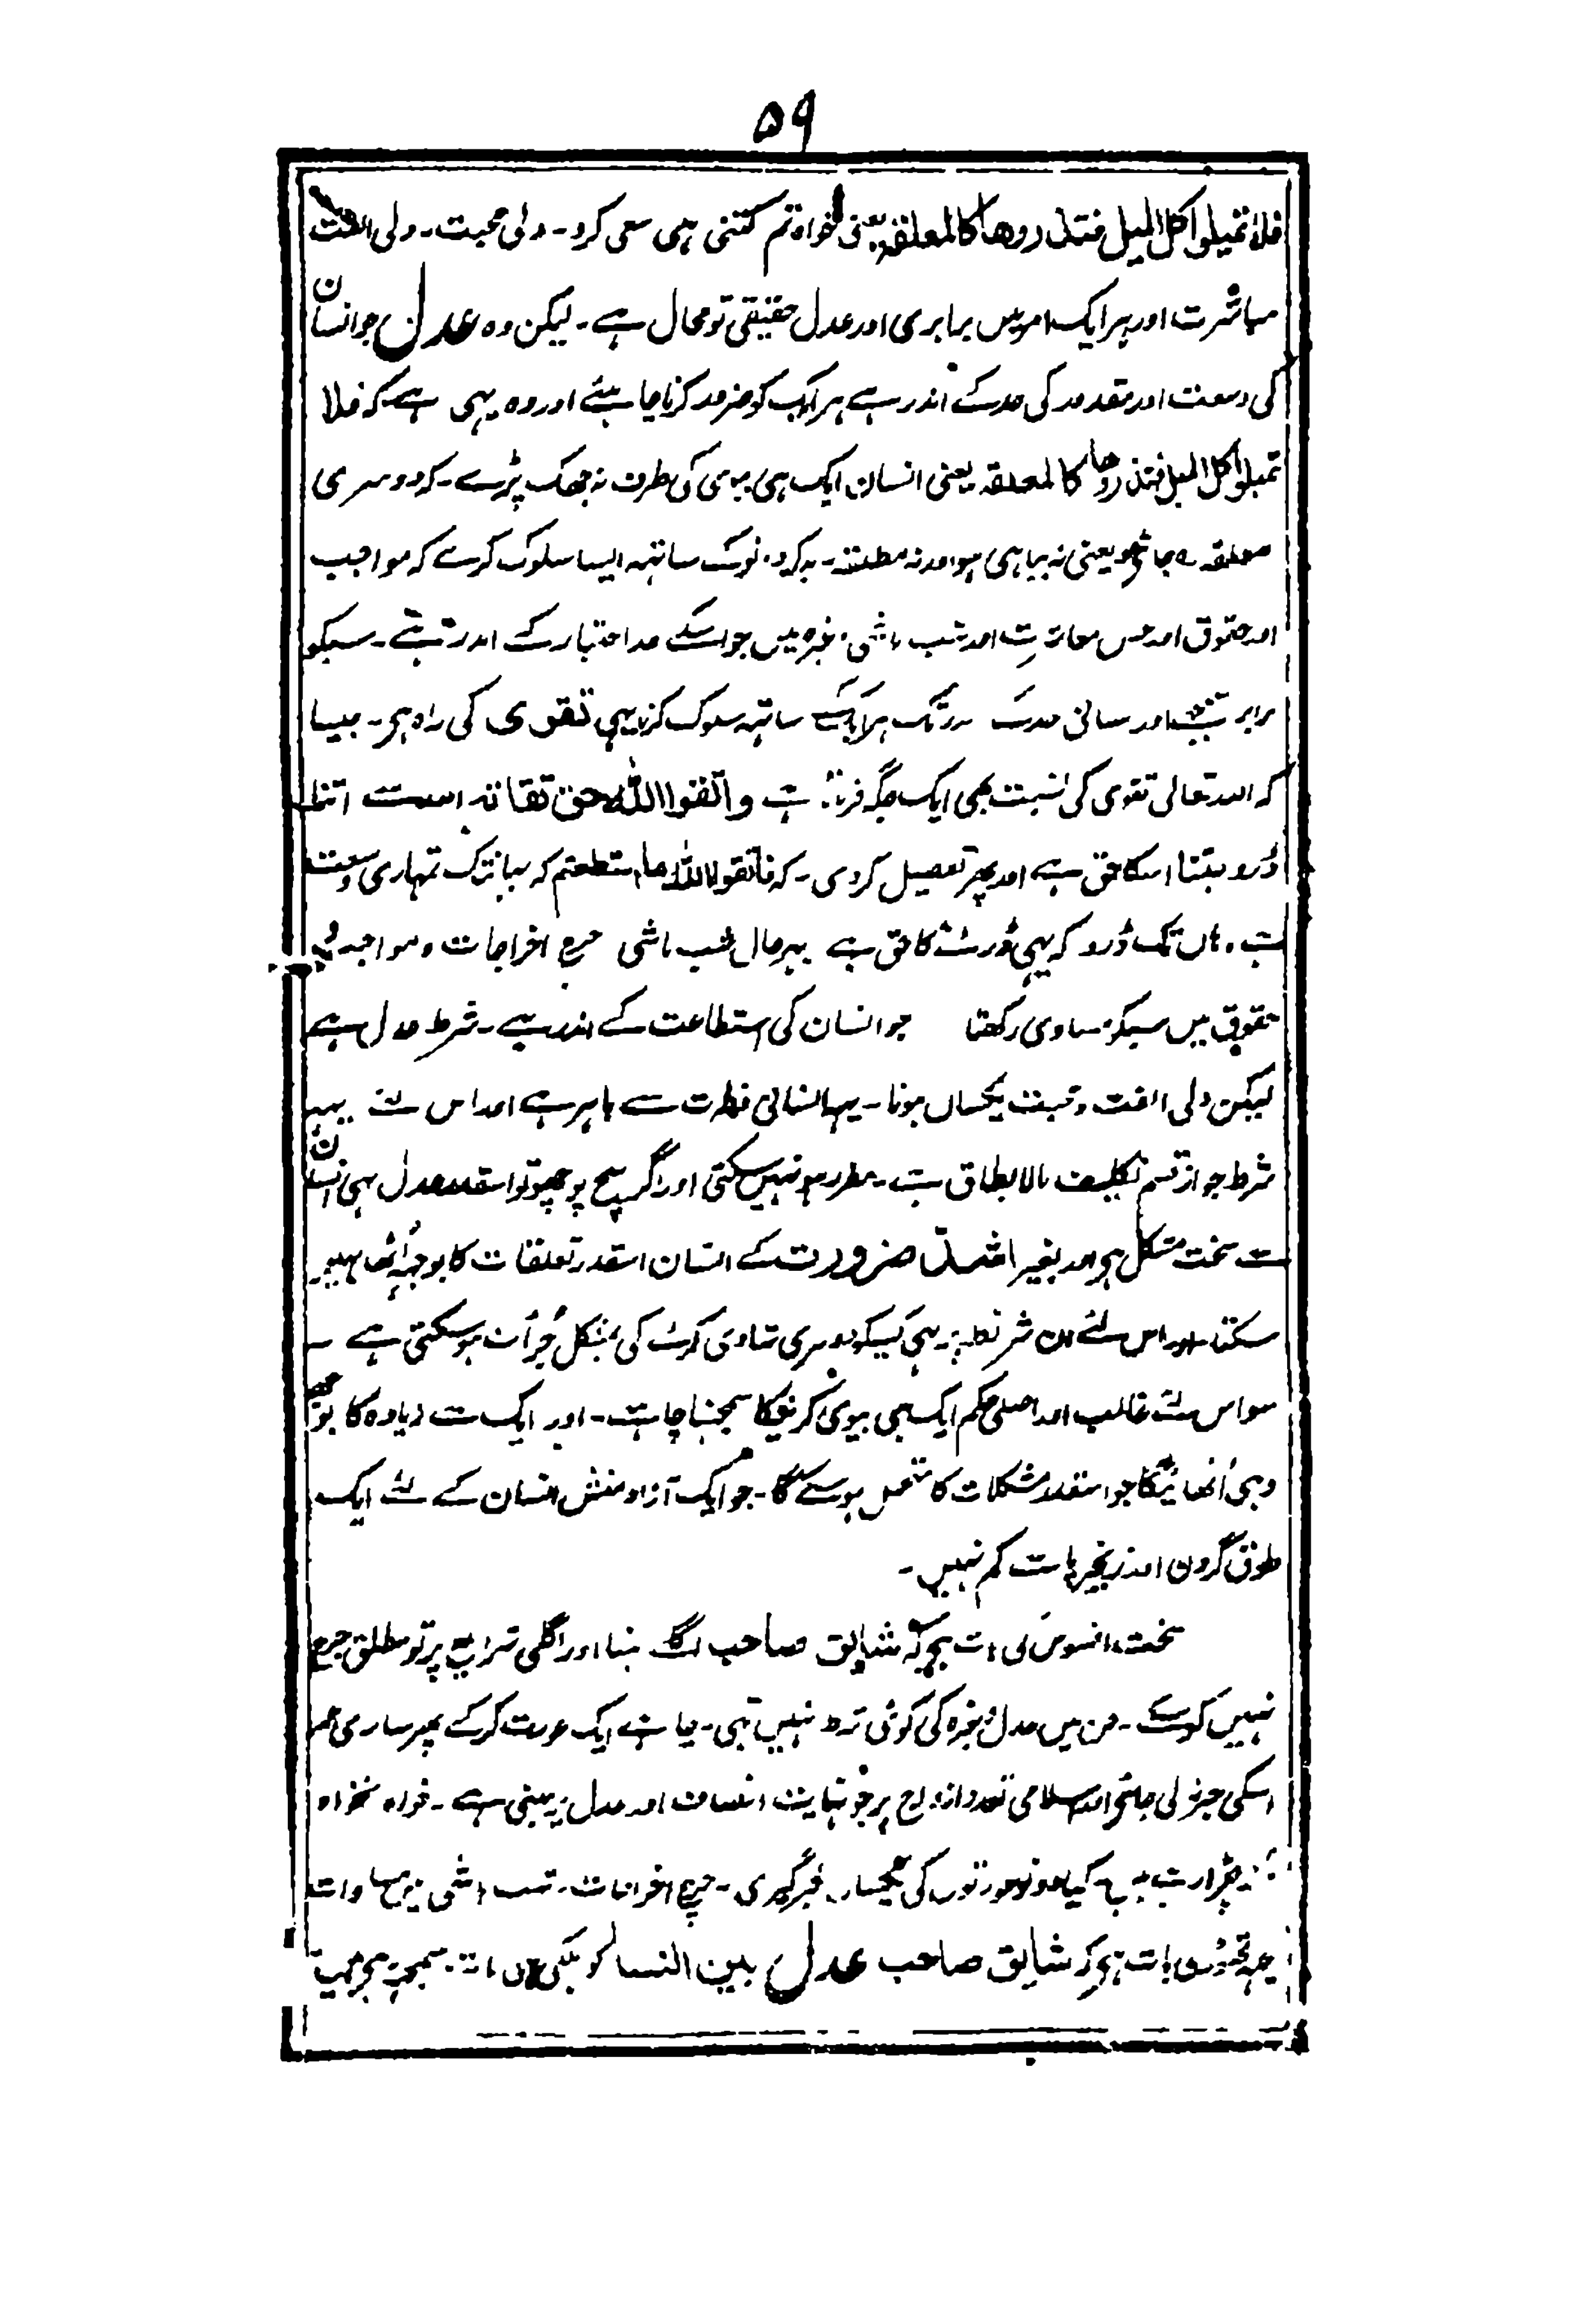 ۵۹
فلا تمیلوا کل المیل فتذروھا کالمعلقہ یعنی خواہ تم کتنی ہی سعی کرو۔ دلی محبت۔ دلی الفت
مباشرت اور ہر ایک امر میں برابری اور عدل حقیقی تو محال ہے۔ لیکن وہ عدل جو انسان
کی وسعت اور مقدور کی حد کے اندر ہے ہر ایک کو ضرور کرنا چاہیئے اور وہ یہی ہے کہ فلا
تمیلوا کل المیل فتذروھا کالمعلقہ یعنی انسان ایک ہی بیوی کی طرف نہ جھک پڑے۔ کہ دوسری
معلقہ ہو یعنی نہ بیاہی ہو اور نہ مطلقہ۔ ساتہہ ایسا سلوک کرے کہ مواجب
اور حقوق اور حسن معاشرت اور شب باشی وغیرہ میں جو اسکے حد اختیار کے اندر ہے۔ سبکو
برابر اور ہر ایک کے ساتہہ سلوک کرنا یہی تقوی کی راہ ہے۔ جیسا
کہ اللہ تعالی تقوی کی نسبت بھی ایک جگہ فرماتا ہے واتقوا اللہ حق تقاتہ اللہ سے اتنا
ڈرو جتنا اسکا حق ہے اور پھر تفصیل کردی۔ کہ فاتقوا اللہ ما استطعتم کہ جہانتک تمہاری وسعت
ہے وہاں تک ڈرو کہ یہی ڈرنے کا حق ہے بہرحال شب باشی خرچ اخراجات و مواجب و
حقوق میں سبکو مساوی رکھنا جو انسان کی استطاعت کے اندر ہے۔ شرط عدل ہے
لیکن دلی الفت و محبت یکساں ہونا۔ یہ انسانی فطرت سے باہر ہے اور اس لئے یہ
شرط جو از قسم تکلیف مالا یطاق ہے۔ مقرر ہو نہیں سکتی اور اگر سچ پوچھو تو اسقدر عدل بھی انسان
سے سخت مشکل ہے اور بغیر اشد ضرورت کے انسان اسقدر تعلقات کا بوجہہ اُٹھا نہیں
سکتا اور اس لئے ان شرائط پر ہی کسیکو دوسری شادی کرنے کی بمشکل جُرأت ہوسکتی ہے ۔
سو اس لئے غالب اور اصلی حکم ایک ہی بیوی کرنیکا سمجہنا چاہئے۔ اور ایک سے زیادہ کا بوجھ
وہی اُٹھائیگا جو اسقدر مشکلات کا متحمل ہوسکے گا۔ جو ایک آزاد منش انسان کے لئے ایک
طوق گردن اور زنجیر پا سے کم نہیں۔
سخت افسوس کی بات ہے کہ شایق صاحب اور اگلی شرایع پر تو مطلق جرح
نہیں کرسکے۔ جن میں عدل وغیرہ کی کوئی شرط نہیں تھی۔ ایک عورت کرکے پھر ساری عمر
اسکی خبر نہ لی جائے اور اسلامی تعدد ازواج پر جو نہایت انصاف اور عدل پر مبنی ہے۔ خواہ نخواہ
کیا دونو عورتوں کی یکساں خبرگیری۔ خرچ اخراجات۔ شب باشی میں مساوات
تھوڑی بات ہے کہ شایق صاحب عدل بین النسا کو سمجہے